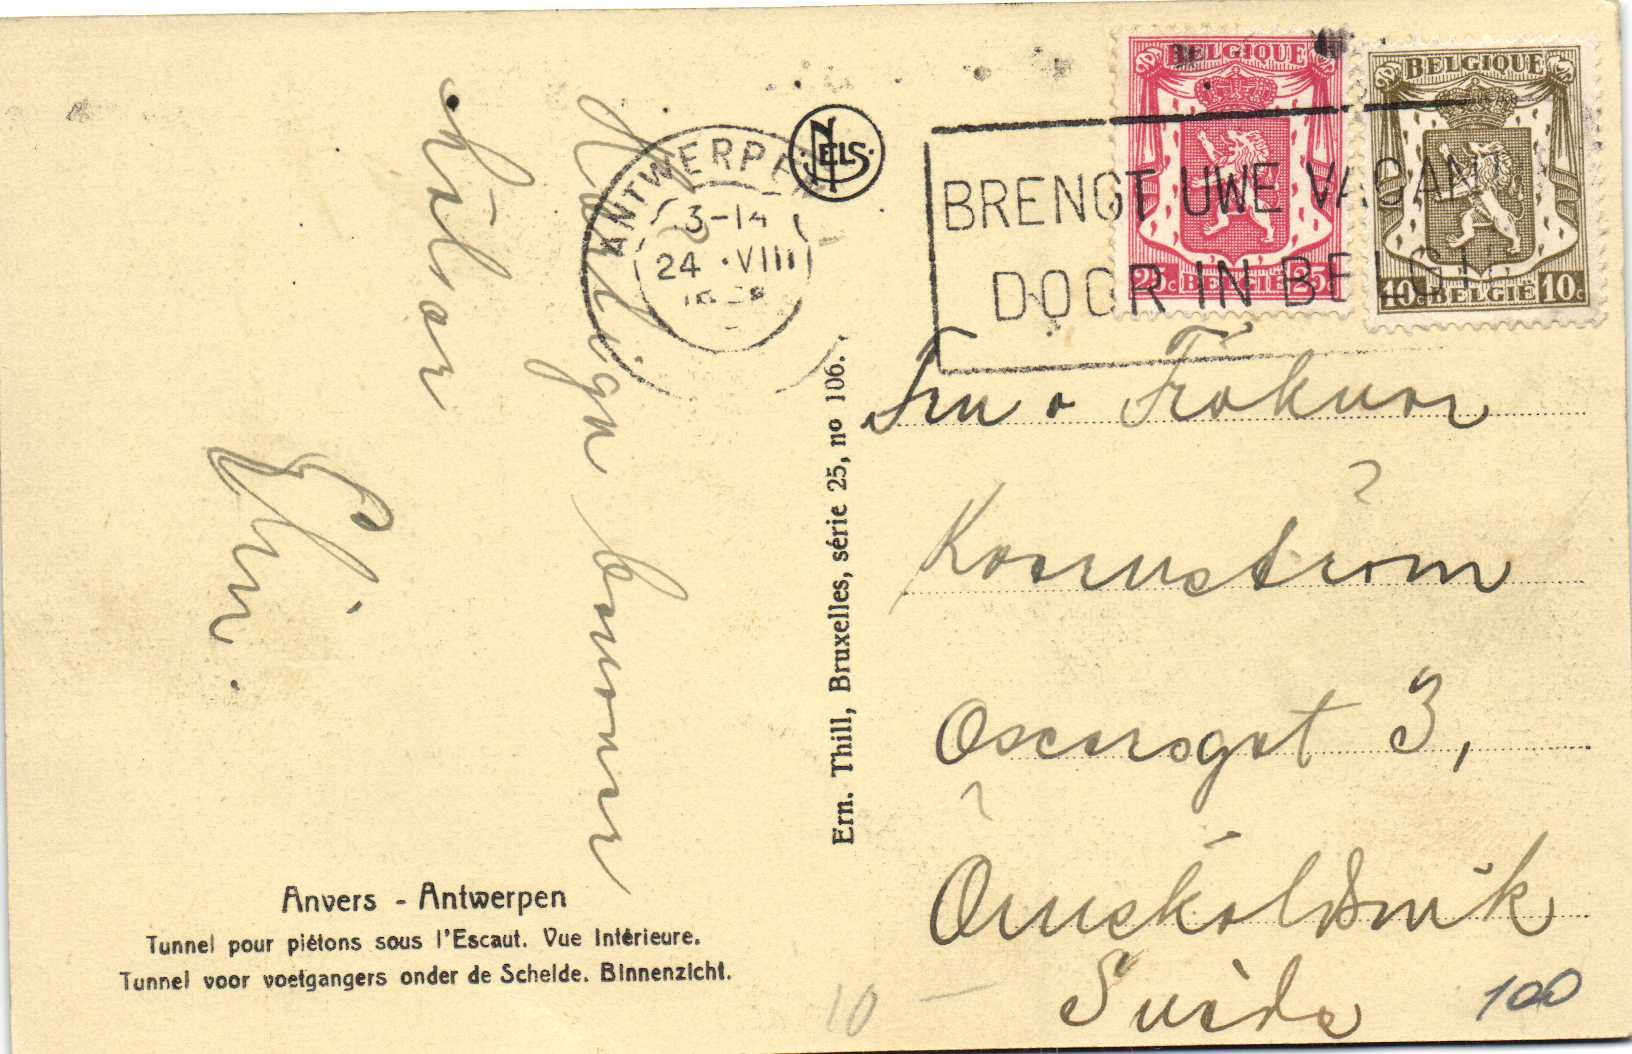 Hjärtlign
hälsar
Elin.
ANTWERPEN
3-14
24 · VIII
NELS
BELGIQUE
25c BELGIË 25c
BELGIQUE
10c BELGIË 10c
BRENGT UWE VACANT
DOOR IN BELGIË
Ern. Thill, Bruxelles, série 25, no 106.
Fru o Fröknar
Kornström
Oscarsgat 3,
Örnsköldsvik
Suède
Anvers - Antwerpen
Tunnel pour piétons sous l'Escaut. Vue Intérieure.
Tunnel voor voetgangers onder de Schelde. Binnenzicht.
10 —
100